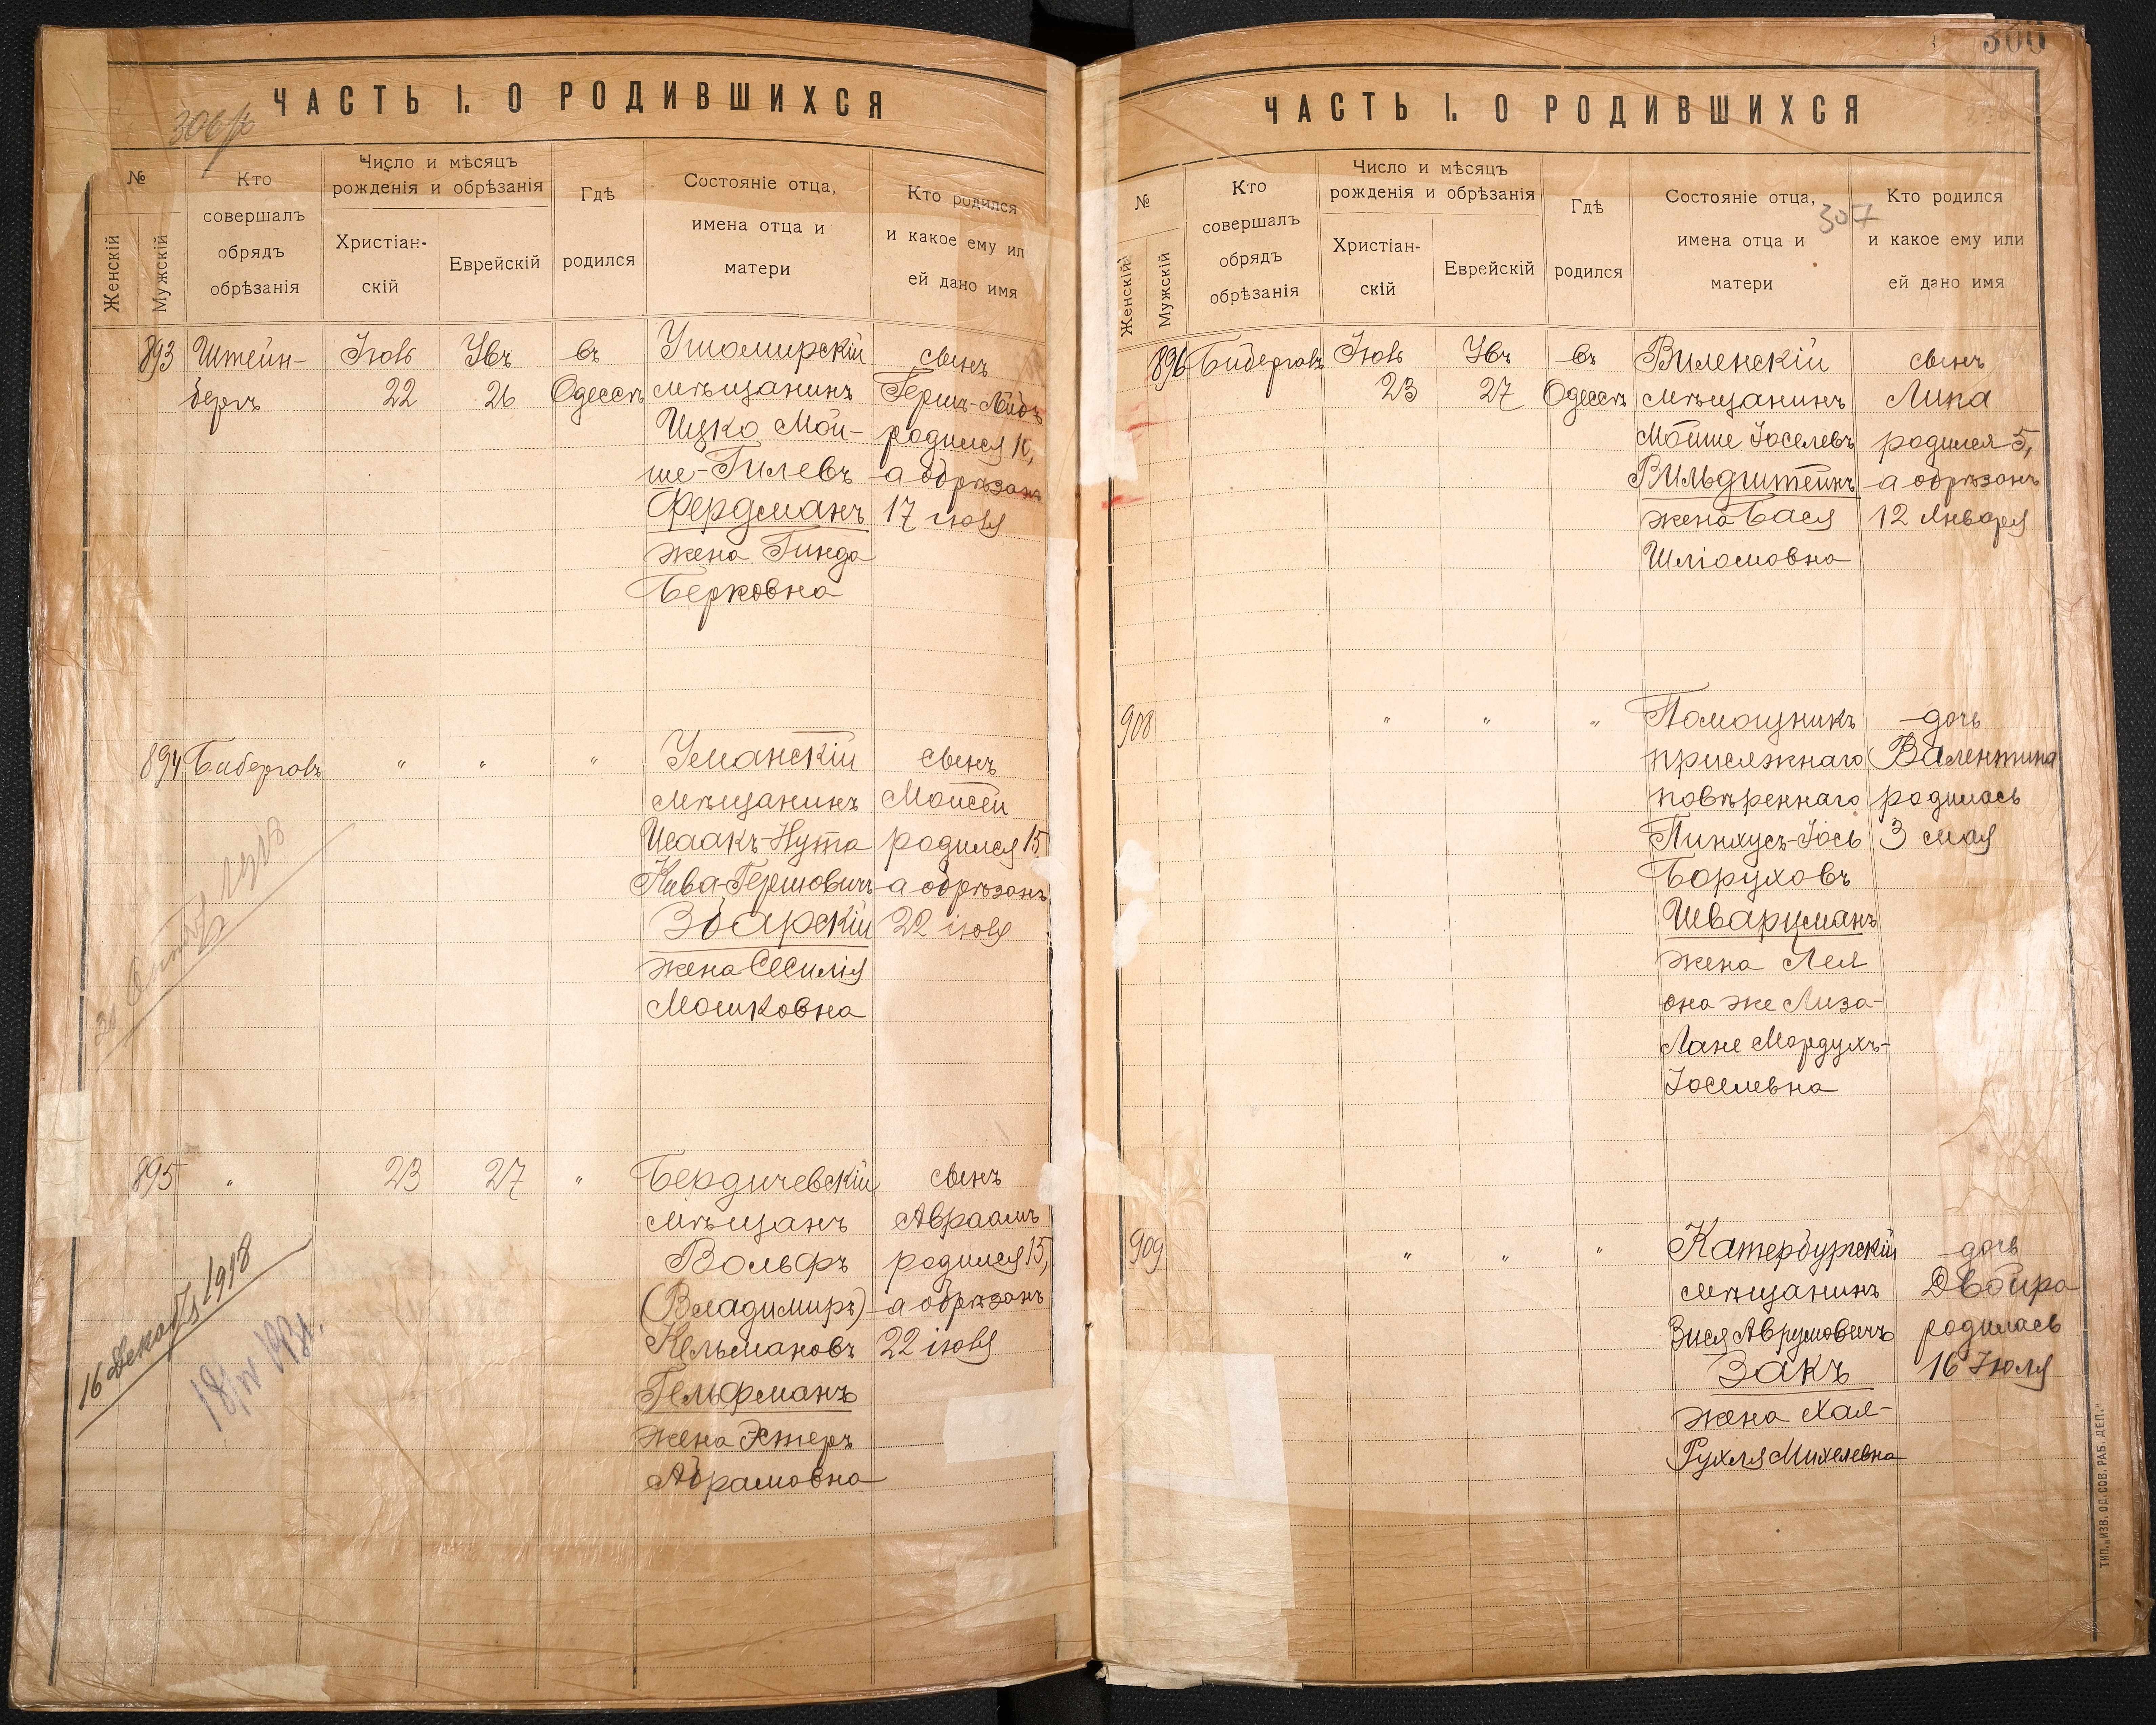 ЧАСТЬ I. О РОДИВШИХСЯ
№
Женскій
Мужскій
Кто
совершалъ
обрядъ
обрѣзанія
Число и мѣсяцъ
рожденія и обрѣзанія
Христіан-
скій
Еврейскій
Гдѣ
родился
Состояніе отца,
имена отца и
матери
Кто родился
и какое ему ил
ей дано имя
893
Штейн-
бергъ
22
26
въ
Одессѣ
Ушомирскій
мѣщанинъ
Ицко Мой-
ше-Гилевъ
Фердманъ
жена Гинда
Берковна
сынъ
родился 10,
а обрѣзанъ
17 іюля
894 Бибергалъ
"
"
"
Уманскій
мѣщанинъ
Исаакъ-Нута
Кива-Гершовичъ
Збарскій
жена Сесилія
Мошковна
сынъ
Моисей
родился 15
а обрѣзанъ
22 іюля
895
"
23
27
"
Бердичевскій
мѣщанъ
Вольфъ
(Владимиръ)
Кельмановъ
Гельфманъ
жена Эстеръ
Абрамовна
сынъ
Авраамъ
родился 15,
а обрѣзанъ
22 іюля
16 Декабя 1918
ЧАСТЬ I. О РОДИВШИХСЯ
300
307
№
Женскій
Мужскій
Кто
совершалъ
обрядъ
обрѣзанія
Число и мѣсяцъ
рожденія и обрѣзанія
Христіан-
скій
Еврейскій
Гдѣ
родился
Состояніе отца,
имена отца и
матери
Кто родился
и какое ему или
ей дано имя
896 Бибергалъ
23
27
въ
Одессѣ
Виленскій
мѣщанинъ
Мойше Іоселевъ
Вильдштейнъ
жена Бася
Шліомовна
сынъ
Липа
родился 5,
а обрѣзанъ
12 Января
908
"
"
"
Помощникъ
присяжнаго
повѣреннаго
Пинхусъ-Іось
Боруховъ
Шварцманъ
жена Лея
она же Лиза-
Лане Мордухъ-
Іоселевна
дочь
Валентина
родилась
3 мая
909
"
"
"
Катербургскій
мѣщанинъ
Зися Аврумовичъ
Закъ
жена Хая-
Рухля Михелевна
дочь
Двойра
родилась
16 Іюля
ТИП. „ИЗВ. ОД. СОВ. РАБ. ДЕП."